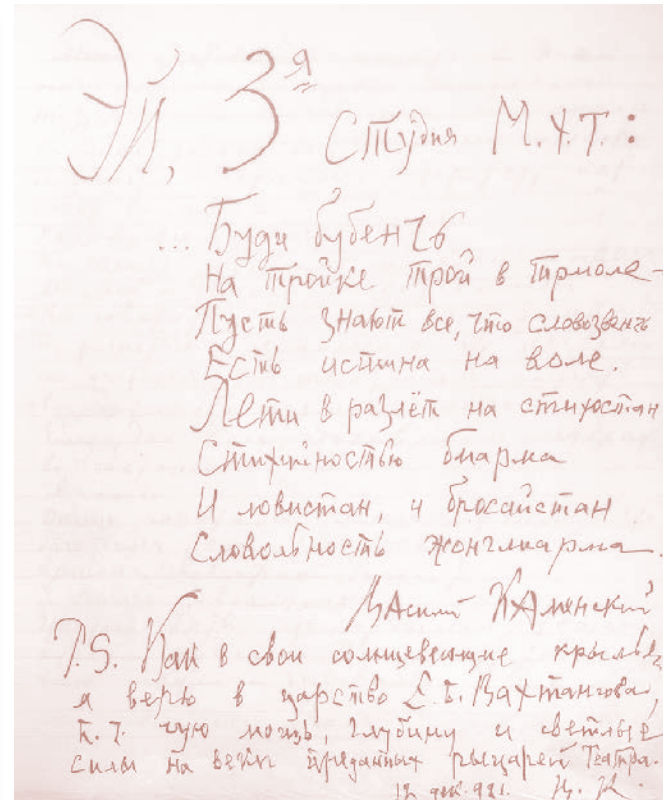 Эй, 3я Студия М.Х.Т.:
... Буди бубенчь
На тройке трой в
Пусть знают все, что словозвень
Есть истина на воле.
Лети в разлёт на стихостан
Стихийностью биарма
И ловистан, и бросайстан
жонглиарма.
Василий Каменский
P.S. Как в свои солнцевеющие крылья,
я верю в царство Е.Б. Вахтангова,
т.ч. чую мощь, глубину и светлые
силы на веки преданных рыцарей Театра.
12 дек. 921. В. К.